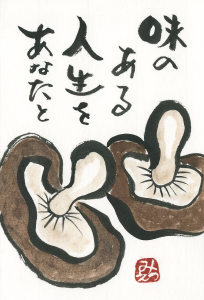 味の
ある
人生を
あなたと